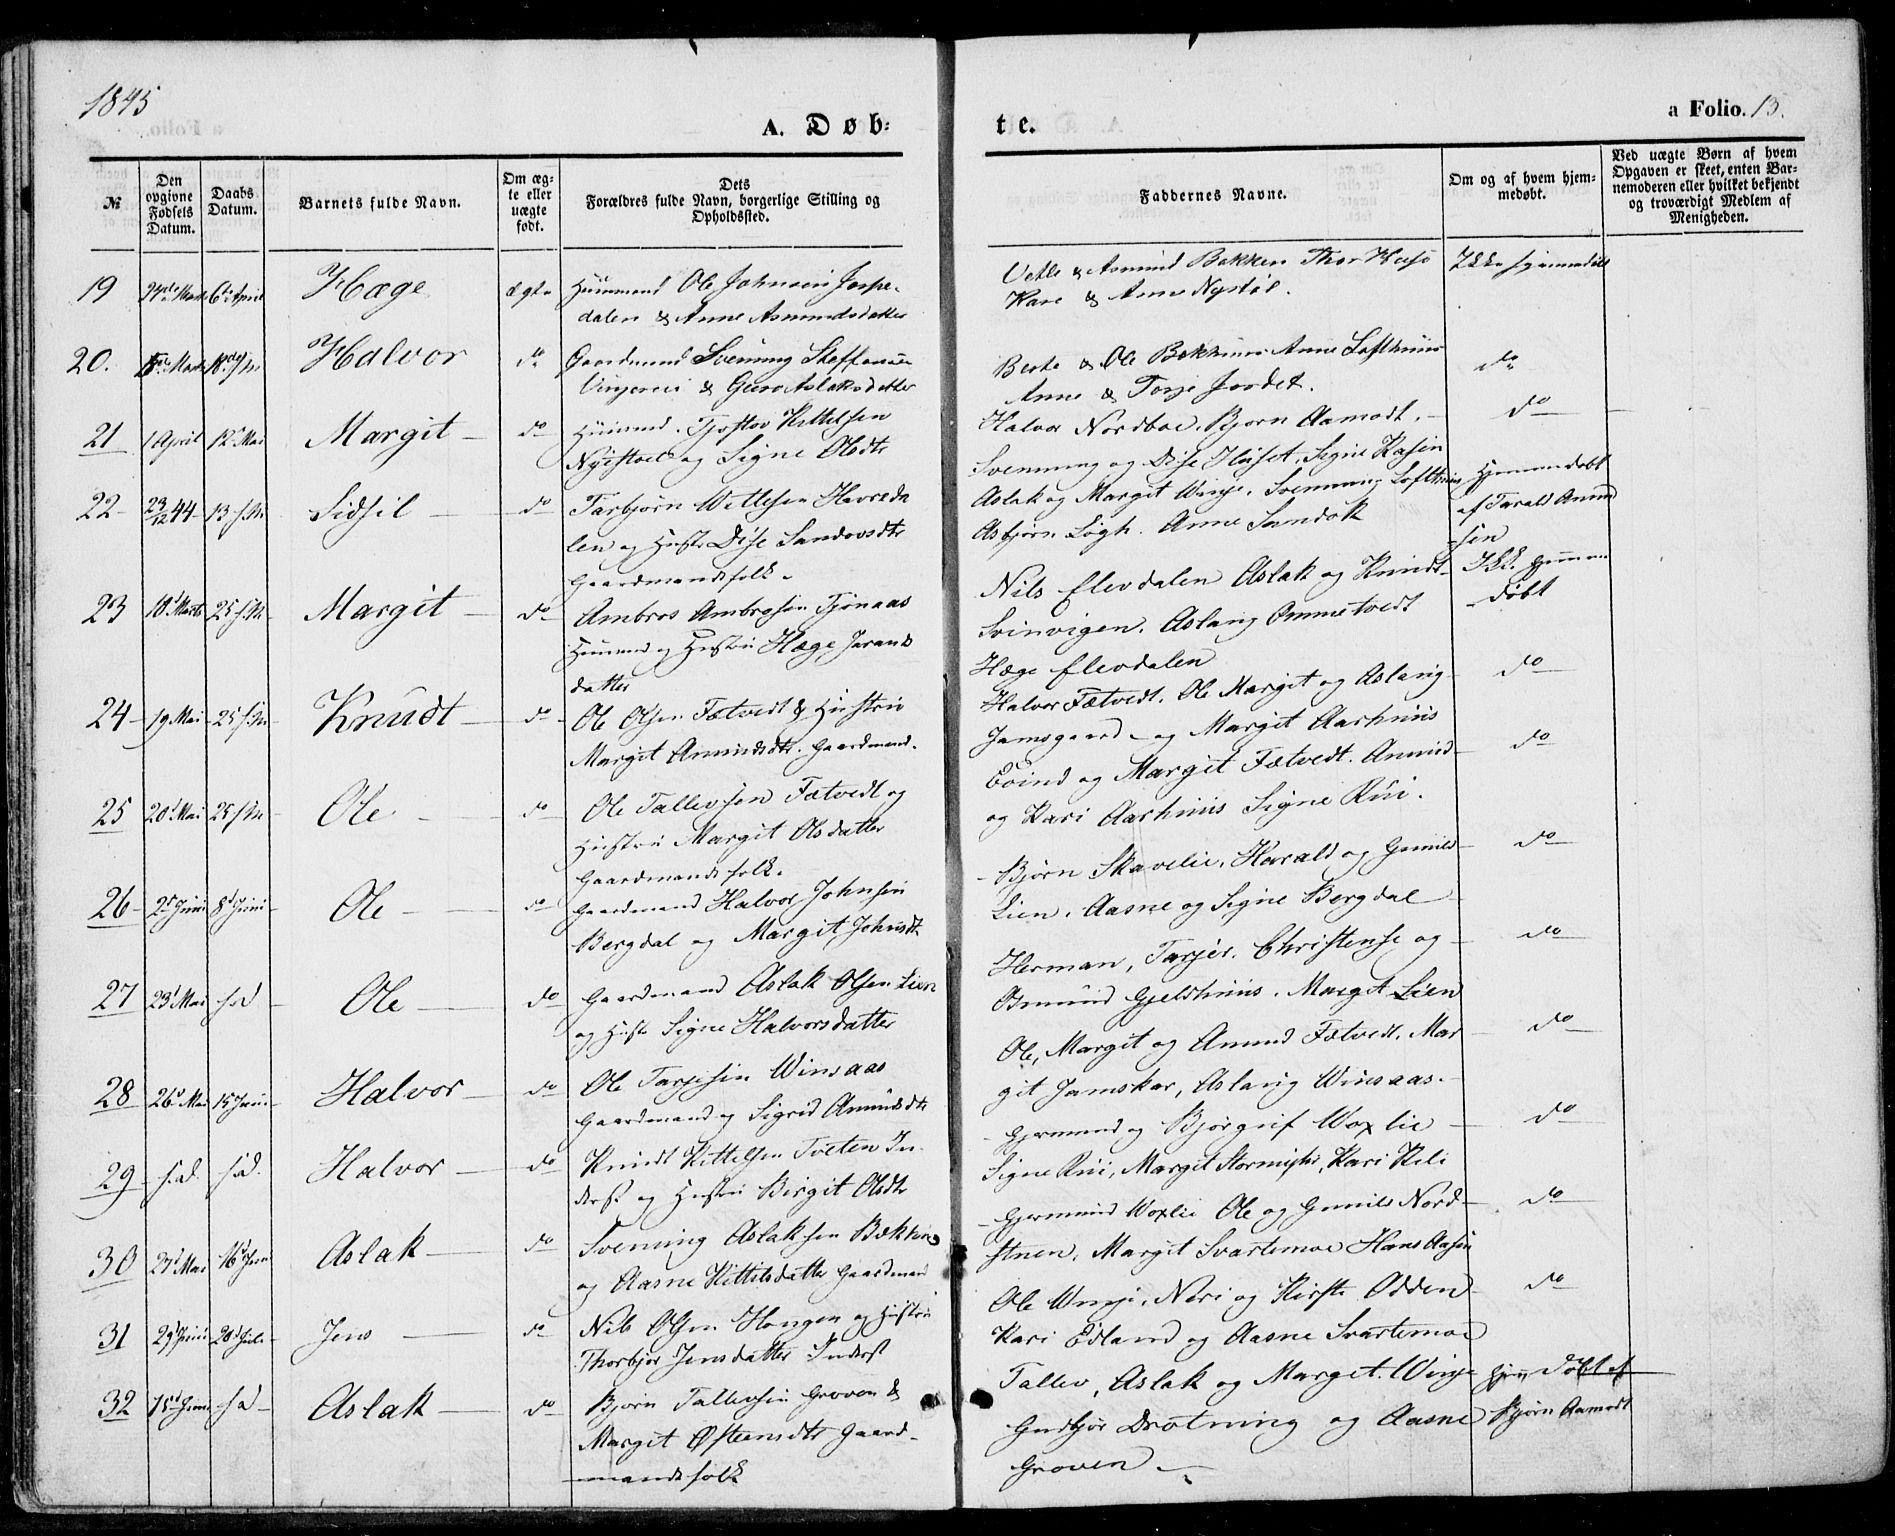 1845
A. Døb:
te.
a Folio. 13.
№
Den opgivne Fødsels Datum.
Daabs Datum.
Barnets fulde Navn.
Om ægte eller uægte født.
Dets Forældres fulde Navn, borgerlige Stilling og Opholdssted.
Faddernes Navne.
Om og af hvem hjemmedøbt.
Ved uægte Børn af hvem Opgaven er skeet, enten Barnemoderen eller hvilket bekjendt og troværdigt Medlem af Menigheden.
19 6te April Hæge ægte Huusmand Ole Johnsen
dalen & Anne Asmundsdatter
& Asmund Bakken Thor
Kare & Anne Nystøl.
20. Halvor do Gaardmand Svenning Steffensen
& Aslaksdatter
& Ole Bekhuus Anne Lofthuus do
Anne & Torje Jordet.
21 1 April 12 Mai Margit do Huusmd. Tjostov Kittelsen
og Signe Olsdtr
Halvor Nordboe, Bjørn Aamodt, do
Svenning og Dise Signe Kasin
22 23/12 44 13 s.M. Sidsil do Tarbjørn Wetlesen Havreda
len og Hustr Dise Sandovsdtr
Gaardmandsfolk.
Aslak og Margit Winje, Svenning Lofthuus Hjemmedøbt
Asbjørn Løgh. Anne Sandok af Tarald Amund
sen
23 10 Marts 25 s.M. Margit do Ambros Ambrosen Tjønaas
Huusmd og Hustru Hæge Jarands
datter
Nils Elevdalen Aslak og Knudt Ikke hjemme
Svinvigen. Aslaug Ommetvedt døbt
Hæge Elevdalen
24 19 Mai 25 s.M. Knudt do Ole Olsen Fætvedt & Hustru
Margit Amundsdtr. Gaardmand.
Halvor Fætvedt. Ole Margit og Aslaug do
Jamsgaard og Margit Aarhuus
25 20 Mai 25 s.M. Ole do Ole Tallevsen Fætvedt og
Hustru Margit Olsdatter
Gaardmandsfolk.
Eivind og Margit Fætvedt. Amund do
og Kari Aarhuus Signe Rui.
26 2 Juni 8 Juni Ole do Gaardmand Halvor Johnsen
Bergdal og Margit Johnsdtr
Bjørn Skavelie, Harald og Gunild do
Lien, Aasne og Signe Bergdal
27 23 Mai s.d Ole do Gaardmand Aslak Olsen Lien
og Hustr Signe Halvorsdatter
Herman, Tarjer, Christense og do
Osmund Gjelshuus. Margit Lien
28 26 Mai 15 Juni Halvor do Ole Tarjesen Winsaas
Gaardmand og Sigrid Amundsdtr
Ole, Margit og Amund Fætvedt, Mar do
git Jamskar, Aslaug Winsaas.
29 s.d. s.d. Halvor do Knudt Kittelsen Tveten In
derst og Hustru Birgit Olsdtr
Gjermund og Bjørgulf Woxlie do
Signe Rui, Margit Kari Kili
30 27 Mai 16 Juni Aslak do Svening Aslaksen Bækhuus
og Aasne Kittilsdatter Gaardmand
Gjermund Woxlie Ole og Gunild Nord do
stuen, Margit Svartemoe Hans Aasen
31 29 Juni 20 Juli Jens do Nils Olsen Haugen og Hustru
Thorbjør Jensdatter Inderst
Ole Winje, Neri og Kirste Odden do
Kari Edland og Aasne Svartemoe
32 15 Juni s.d Aslak do Bjørn Tallevsen Groven &
Margit Østeensdtr Gaard
mandsfolk
Tallev, Aslak og Margit Winje Hjem døbt af
Gudbjør Drotning og Aasne Bjørn Aamodt
Groven